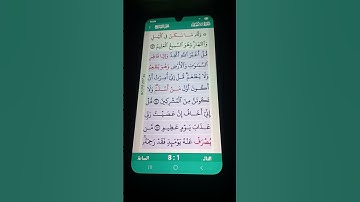 وَلَهُ مَا سَكَنَ فِي الَّيْلِ
وَالنَّهَارِ وَهُوَ السَّمِيعُ الْعَلِيمُ ۝
قُلْ أَغَيْرَ اللَّهِ أَتَّخِذُ وَلِيًّا فَاطِرِ
السَّمَوَاتِ وَالْأَرْضِ وَهُوَ يُطْعِمُ
وَلَا يُطْعَمُ قُلْ إِنِّي أُمِرْتُ أَنْ
أَكُونَ أَوَّلَ مَنْ أَسْلَمَ وَلَا
تَكُونَنَّ مِنَ الْمُشْرِكِينَ ۝ قُلْ
إِنِّي أَخَافُ إِنْ عَصَيْتُ رَبِّي
عَذَابَ يَوْمٍ عَظِيمٍ ۝ مَّن
يُصْرَفْ عَنْهُ يَوْمَئِذٍ فَقَدْ رَحِمَهُ
التالى 8 : 1 السابق